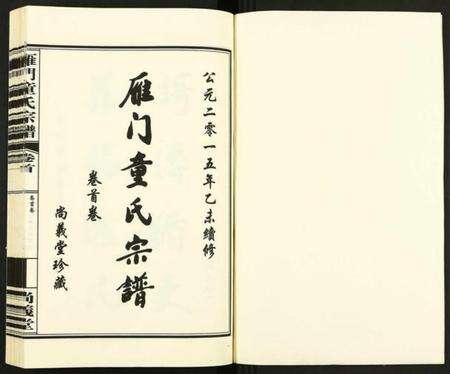 公元二零一五年乙未續修
雁门童氏宗譜
卷首卷
尚義堂珍藏
雁門童氏宗譜
卷首
卷首卷
尚義堂